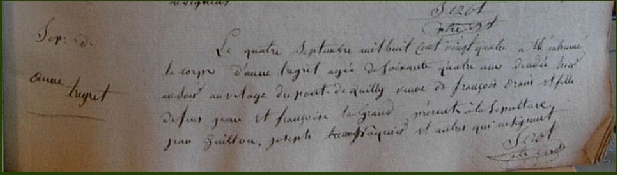 Serot
Sep. d.
anne trugret
Le quatre Septembre mil huit Cent vingt quatre a été inhumé
le corps d'anne trugret agée de soixante quatre ans décédé hier
au soir au village du pont de quilly veuve de françois drain et fille
de feus jean et françoise le Grand présents à la Sepulture
jean guillou, joseph et autres qui ne signent
Serot